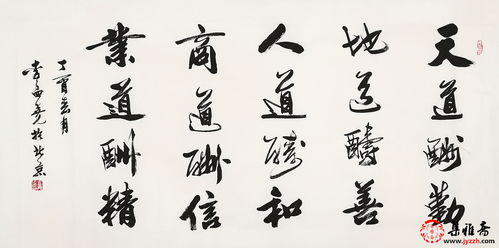 天道酬勤
地道醻善
人道醻和
商道酬信
業道酬精
丁酉春月
李孟尧於北京
集雅斋
www.jyzzh.com